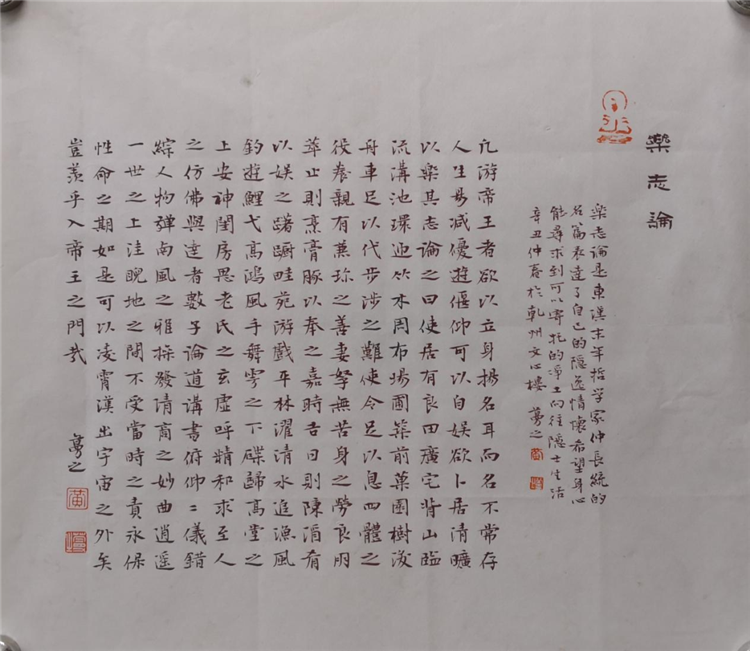 樂志論
樂志論是東漢末年哲学家仲長統的
名篇表達了自己的隐逸情懷希望身心
能尋求到可以寄托的淨土向往隐士生活
辛丑仲春於乾州文心樓
凡游帝王者欲以立身揚名耳而名不常存
人生易滅優遊偃仰可以自娱欲卜居清曠
以樂其志論之曰使居有良田廣宅背山臨
流溝池環迊竹木周布場圃築前菓園樹後
舟車足以代步涉之難使令足以息四體之
役養親有兼珍之善妻孥無苦身之勞良朋
萃止則烹膏豚以奉之嘉時吉日則陳酒肴
以娱之躇躕畦苑游戲平林濯清水追風
釣遊鯉弋高鴻風乎舞雩之下歸高堂之
上安神閨房思老氏之玄虛呼精和求至人
之仿佛與達者數子論道講書俯仰二儀錯
綜人物彈南風之雅操發清商之妙曲逍遥
一世之上睨地之間不受當時之責永保
性命之期如是可以凌霄漢出宇宙之外矣
豈羨乎入帝王之門哉